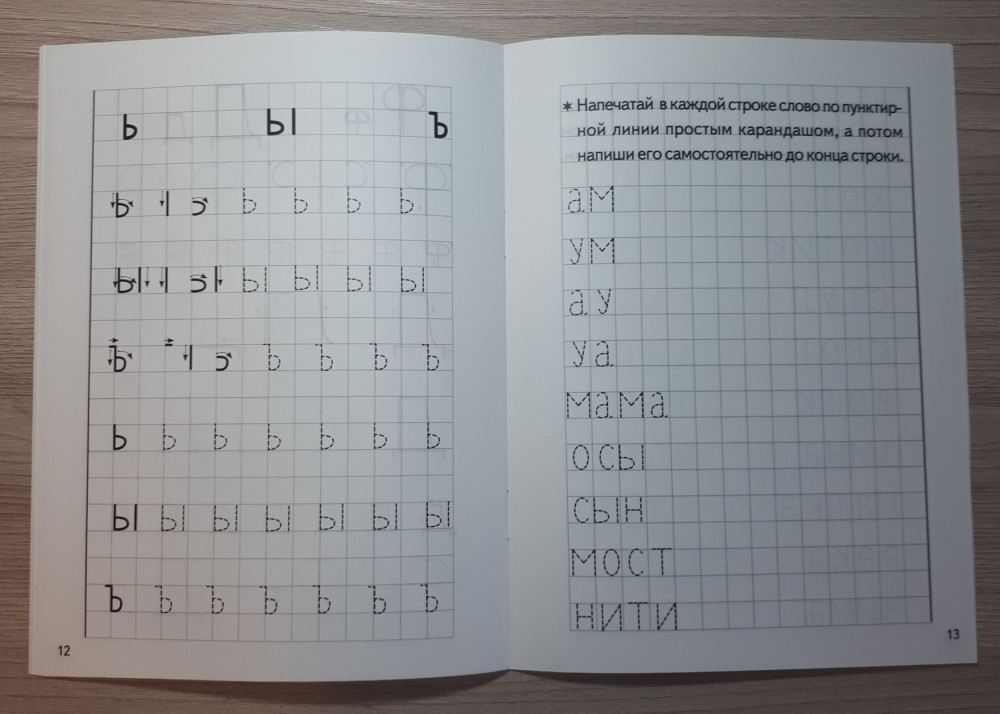 ь ы ъ
ь ı ɔ ь ь ь ь
ы ı ɔı ы ы ы ы
ъ ı ɔ ъ ъ ъ ъ
ь ь ь ь ь ь ь
ы ы ы ы ы ы ы
ъ ъ ъ ъ ъ ъ ъ
12
✶ Напечатай в каждой строке слово по пунктир-
ной линии простым карандашом, а потом
напиши его самостоятельно до конца строки.
ам
ум
ау
уа
мама
осы
сын
мост
нити
13